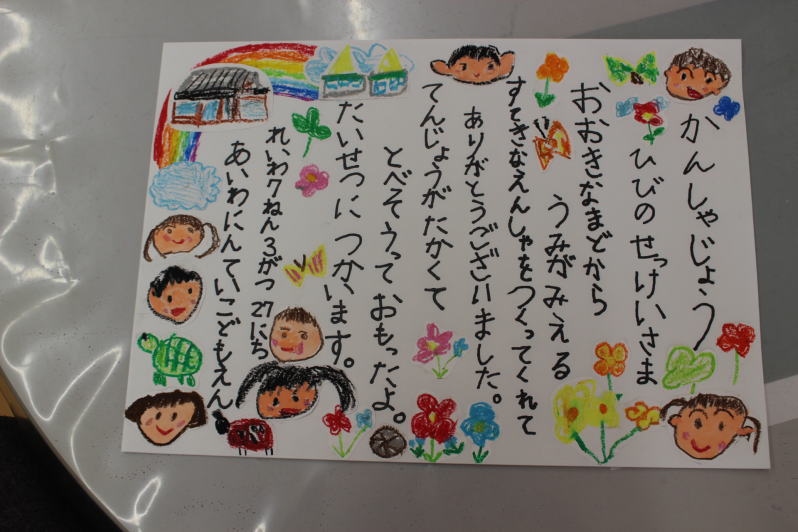 かんしゃじょう
ひびのせっけいさま
おおきなまどから
うみがみえる
すてきなえんしゃをつくってくれて
ありがとうございました。
てんじょうがたかくて
とべそうっておもったよ。
たいせつにつかいます。
れいわ7ねん3がつ27にち
あいわにんていこどもえん